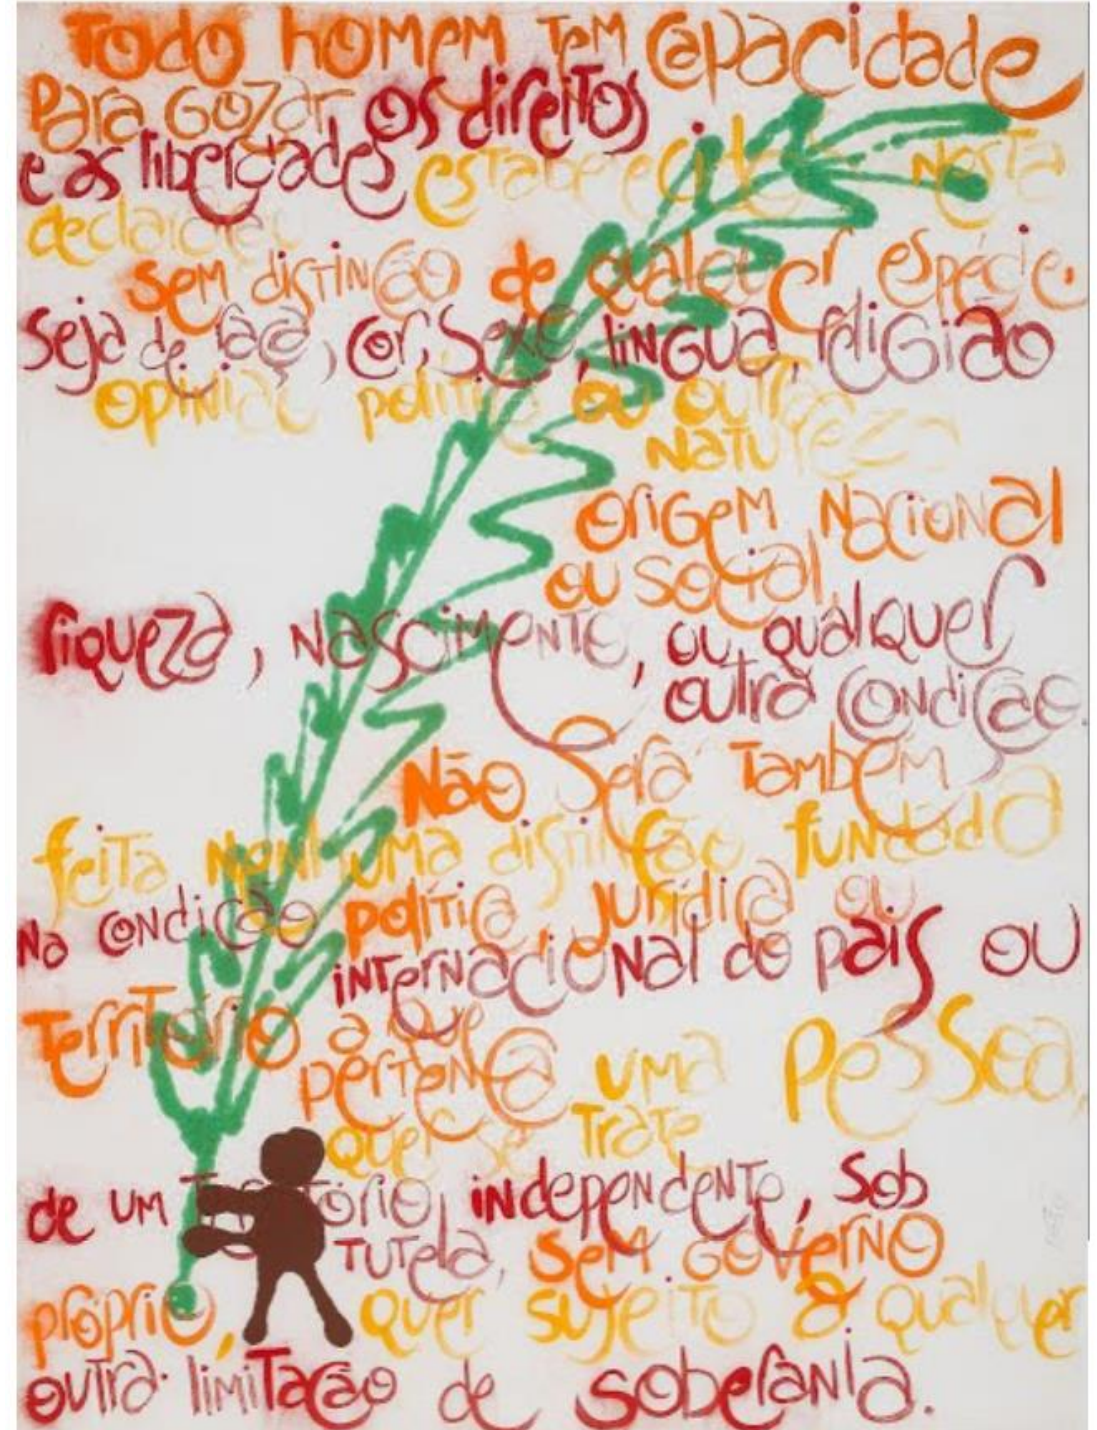 Todo homem Tem capacidade
Para Gozar os direitos
e as liberdades estabelecidos nesta
declaração
sem distinção de qualquer espécie.
Seja de raça, cor, sexo, língua, religião
opinião política ou outra
natureza
origem nacional
ou social,
riqueza, nascimento, ou qualquer
outra condição.
Não Será Também
feita nenhuma distinção fundada
na condição política jurídica ou
internacional do pais ou
Território a que
pertença uma pessoa,
quer se Trate
de um Território independente, Sob
Tutela, sem governo
próprio, quer sujeito a qualquer
outra limitação de soberania.